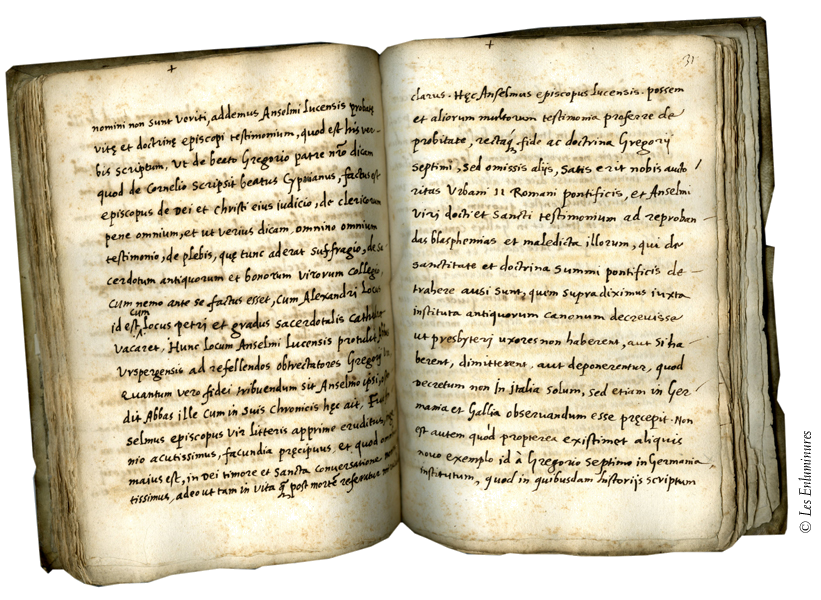 +
nomini non sunt veriti, addemus Anselmi Lucensis probatę
vitę et doctrinę episcopi testimonium, quod est his ver-
bis scriptum, Ut de beato Gregorio patre nr̃o dicam
quod de Cornelio scripsit beatus Cyprianus, factus est
episcopus de Dei et Christi eius iudicio, de clericorum
pene omnium, et ut verius dicam, omnino omnium
testimonio, de plebis, quę tunc aderat suffragio, de sa
cerdotum antiquorum et bonorum virorum collegio,
cum nemo ante se factus esset, cum Alexandri locus
cum
id est, locus petri et gradus sacerdotalis cathedrę
vacaret, Hunc locum Anselmi Lucensis protulit
Urspergensis ad refellendos obtrectatores Gregorij
Quantum vero fidei tribuendum sit Anselmo ipsi,
dit Abbas ille cum in suis Chronicis hęc ait,
selmus episcopus vir litteris apprime eruditus,
nio acutissimus, facundia pręcipuus, et quod omnium
maius est, in Dei timore et sancta conversatione
tissimus, adeo ut tam in vita q̃ post mortẽ referatur
+
31
clarus. Hęc Anselmus episcopus Lucensis. possem
et aliorum multorum testimonia proferre de
probitate, rectaq; fide ac doctrina Gregorij
septimi, sed omissis alijs, satis erit nobis aucto
ritas Urbani II Romani pontificis, et Anselmi
virj docti et sancti testimonium ad reproban-
das blasphemias et maledicta illorum, qui de
sanctitate et doctrina summi pontificis de-
trahere ausi sunt, quem supra diximus iuxta
instituta antiquorum canonum decrevisse
ut presbyterj uxores non haberent, aut si ha-
berent, dimitterent, aut deponerentur, quod
decretum non in italia solum, sed etiam in Ger-
mania et Gallia observandum esse pręcepit. Non
est autem quòd propterea existimet aliquis
novo exemplo id à Gregorio septimo in Germania
institutum, quod in quibusdam historijs scriptum
© Les Enluminures